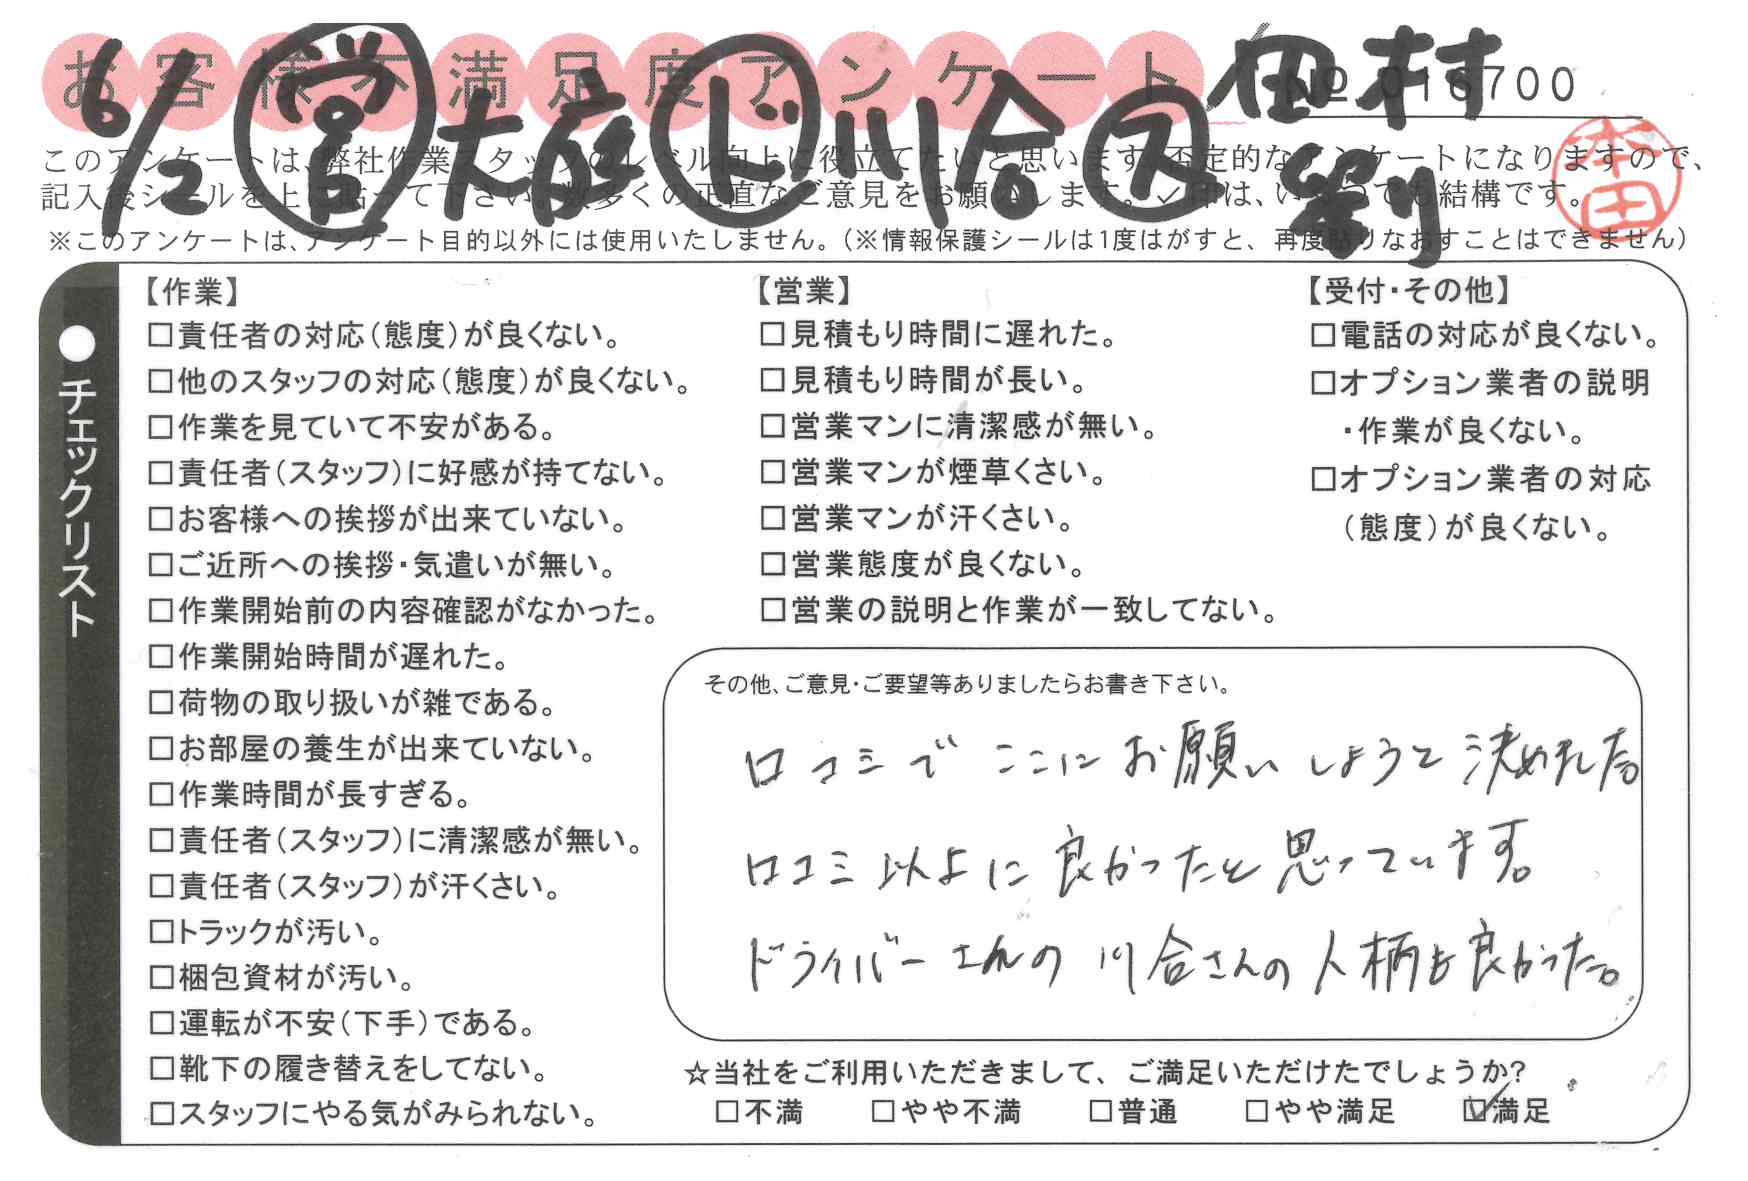 お客様不満足度アンケート
No 016700
6/2 営 大庭 ド 川合 ス 田村 劉
本田
このアンケートは、弊社作業スタッフのレベル向上に役立てたいと思います。否定的なアンケートになりますので、
記入後シールを上に貼って下さい。数多くの正直なご意見をお願いします。✓印は、いくつでも結構です。
※このアンケートは、アンケート目的以外には使用いたしません。（※情報保護シールは1度はがすと、再度貼りなおすことはできません）
●チェックリスト
【作業】
□責任者の対応（態度）が良くない。
□他のスタッフの対応（態度）が良くない。
□作業を見ていて不安がある。
□責任者（スタッフ）に好感が持てない。
□お客様への挨拶が出来ていない。
□ご近所への挨拶・気遣いが無い。
□作業開始前の内容確認がなかった。
□作業開始時間が遅れた。
□荷物の取り扱いが雑である。
□お部屋の養生が出来ていない。
□作業時間が長すぎる。
□責任者（スタッフ）に清潔感が無い。
□責任者（スタッフ）が汗くさい。
□トラックが汚い。
□梱包資材が汚い。
□運転が不安（下手）である。
□靴下の履き替えをしてない。
□スタッフにやる気がみられない。
【営業】
□見積もり時間に遅れた。
□見積もり時間が長い。
□営業マンに清潔感が無い。
□営業マンが煙草くさい。
□営業マンが汗くさい。
□営業態度が良くない。
□営業の説明と作業が一致してない。
【受付・その他】
□電話の対応が良くない。
□オプション業者の説明
・作業が良くない。
□オプション業者の対応
（態度）が良くない。
その他、ご意見・ご要望等ありましたらお書き下さい。
口コミで ここに お願い しようと 決めました。
口コミ 以上に 良かったと 思っています。
ドライバーさんの 川合さんの 人柄も良かった。
☆当社をご利用いただきまして、ご満足いただけたでしょうか?
□不満 □やや不満 □普通 □やや満足 ☑満足